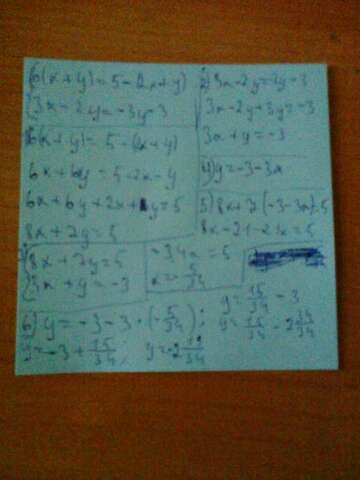 6(x+y)=5-(2x+y)
3x-2y=-3y-3
6(x+y)=5-(2x+y)
6x+6y=5-2x-y
6x+6y+2x+y=5
8x+7y=5
8x+7y=5
3x+y=-3
2) 3x-2y=-3y-3
3x-2y+3y=-3
3x+y=-3
4) y=-3-3x
5) 8x+7(-3-3x)=5
8x-21-21x=5
-34x=5
x=-5/34
6) y=-3-3·(-5/34);
y=-3+15/34; y=-2 19/34
y=15/34-3
y=15/34-2 34/34